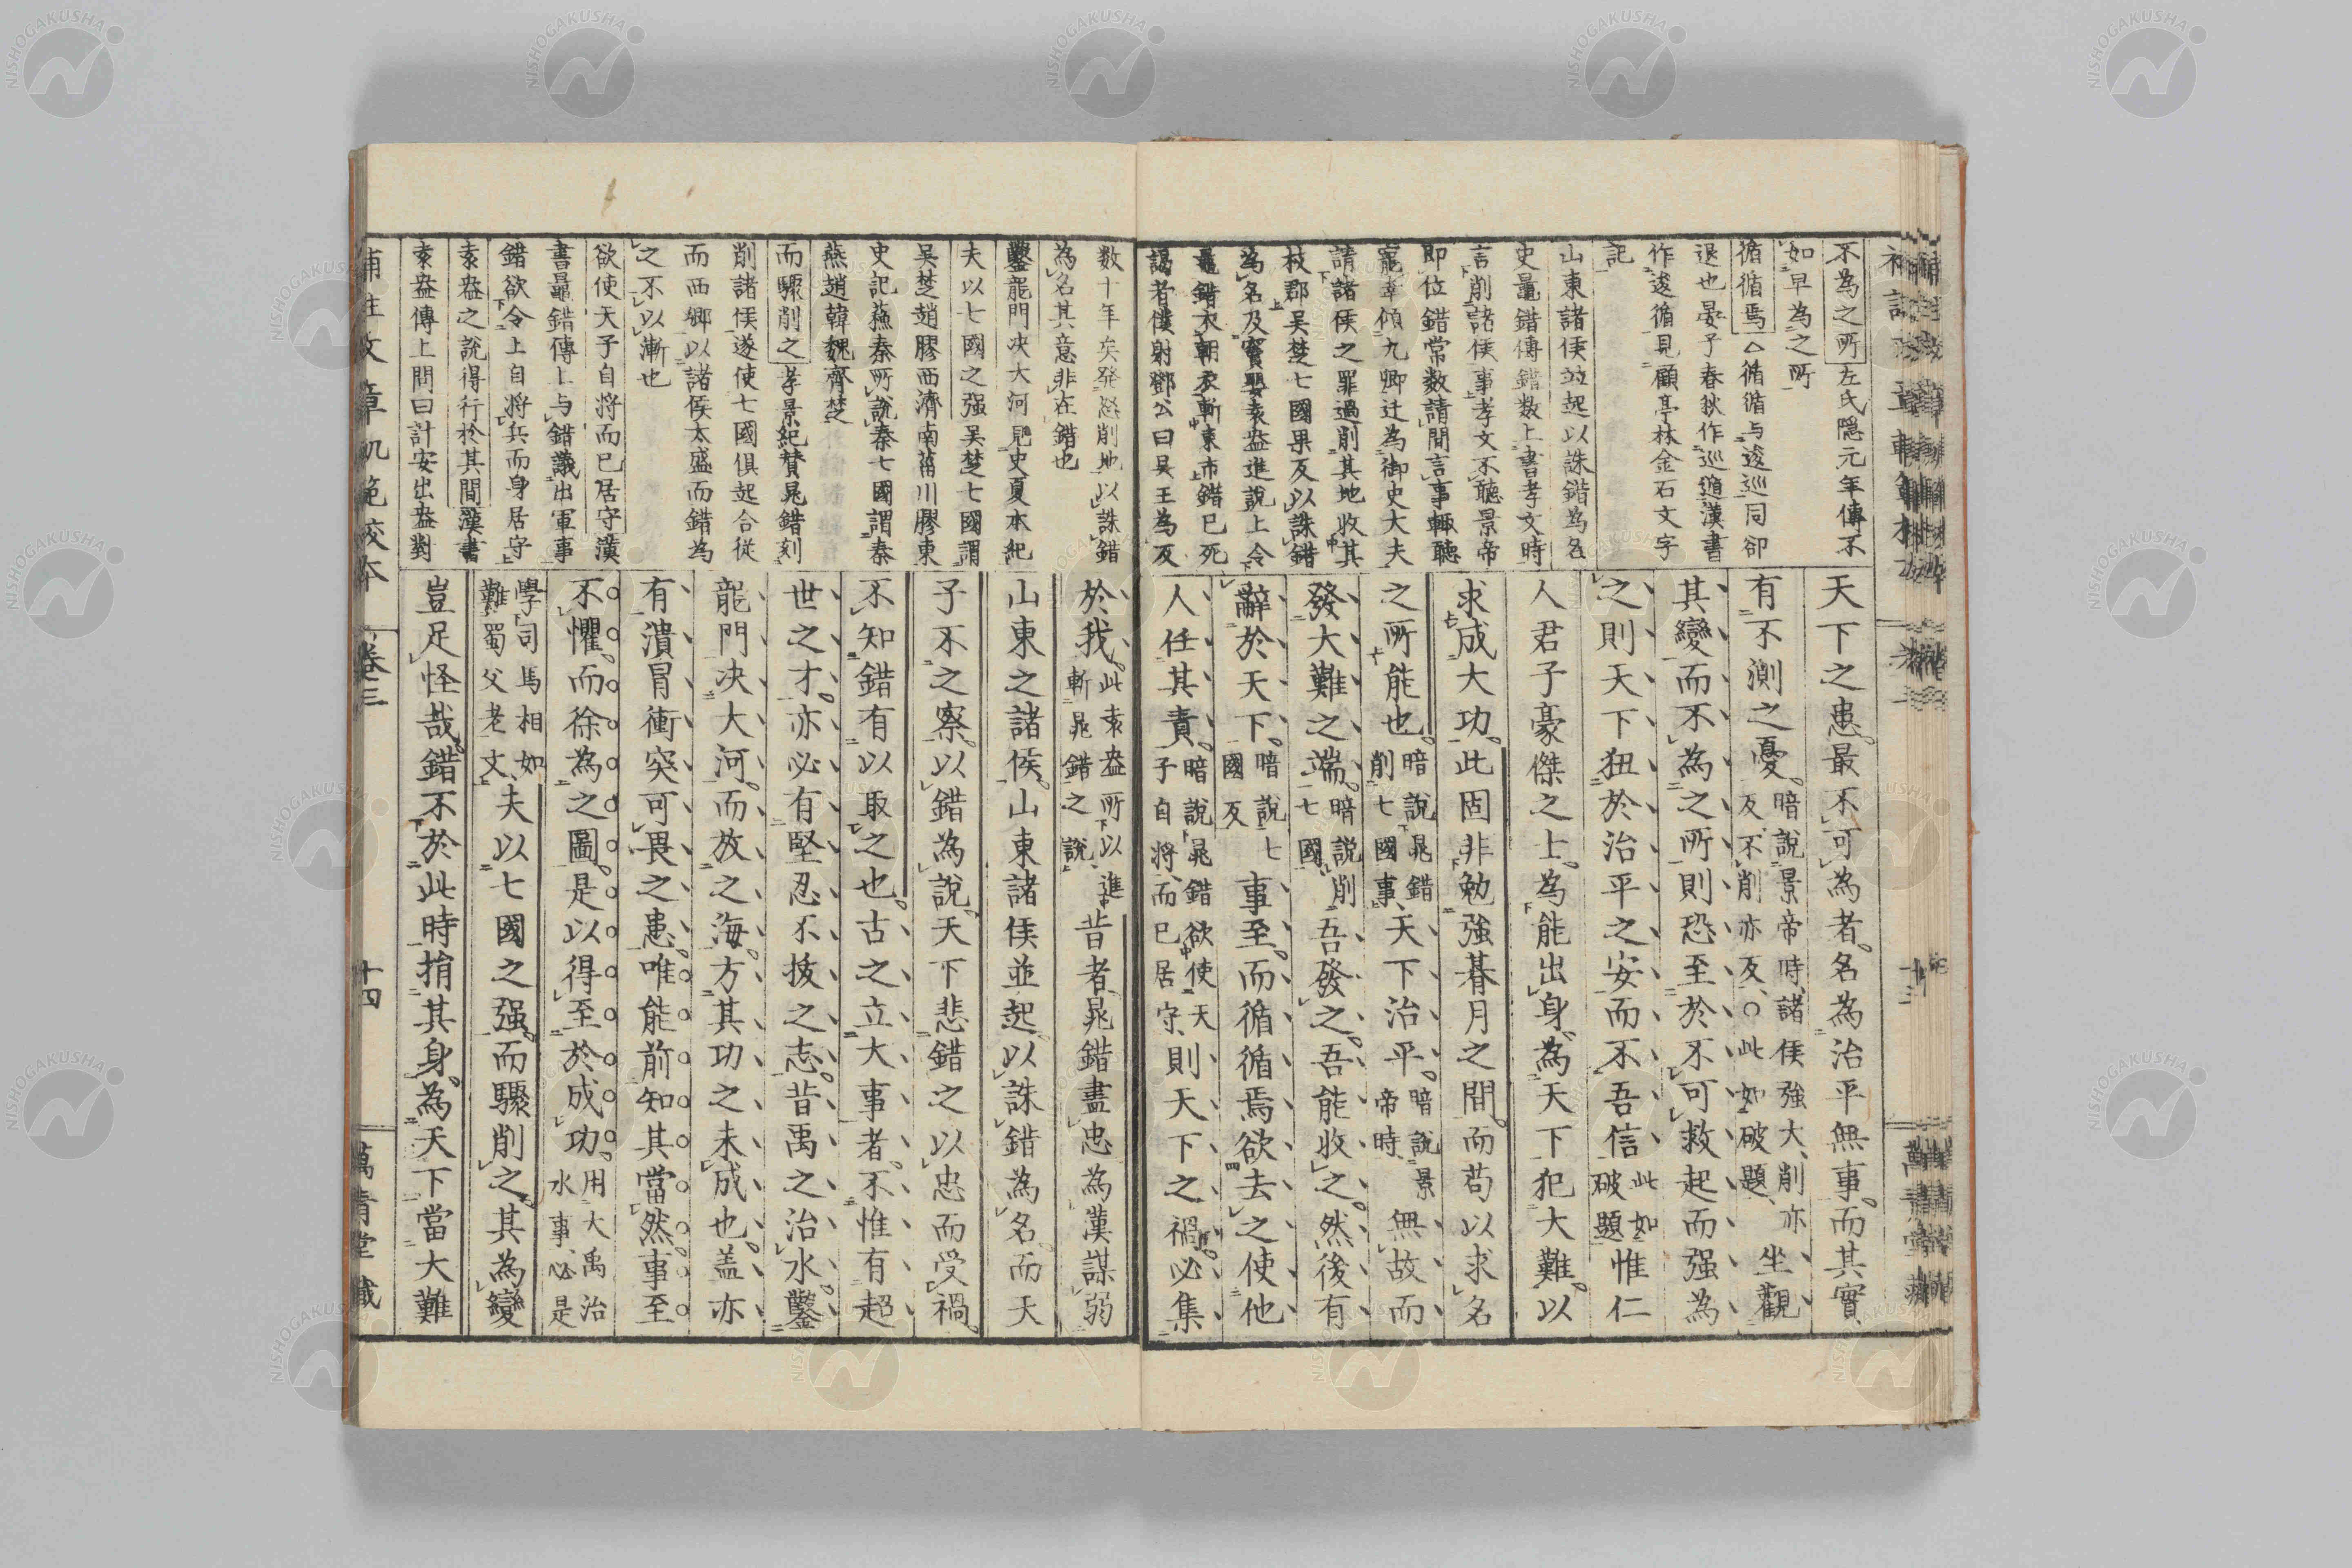 不為之所左氏隠元年傳不
如早為之所
循循焉△循循与逡巡同卻
退也晏子春秋作巡遁漢書
作逡循見顧亭林金石文字
記
山東諸侯竝起以誅錯為名
史鼂錯傳錯数上書孝文時
言削諸侯事孝文不聽景帝
即位錯常数請間言事輒聽
寵幸傾九卿迁為御史大夫
請諸侯之罪過削其地收其
枝郡吴楚七國果反以誅錯
為名及竇嬰袁盎進說上令
鼂錯衣朝衣斬東市錯已死
謁者僕射鄧公曰吴王為反
天下之患最不可為者名為治平無事而其實
有不測之憂暗說景帝時諸侯強大削亦
反不削亦反○此如破題坐觀
其變而不為之所則恐至於不可救起而强為
之則天下狃於治平之安而不吾信此如
破題惟仁
人君子豪傑之士為能出身為天下犯大難以
求成大功此固非勉強朞月之間而苟以求名
之所能也暗說晁錯
削七國事天下治平暗說景
帝時無故而
發大難之端暗説削
七國吾發之吾能收之然後有
辭於天下暗說七
國反事至而循循焉欲去之使他
人任其責暗說晁錯欲使天
子自將而已居守則天下之禍必集
数十年矣發怒削地以誅錯
為名其意非在錯也
鑿龍門决大河見史夏本紀
夫以七國之强吴楚七國謂
吴楚趙膠西濟南菑川膠東
史記蘇秦所說秦七國謂秦
燕趙韓魏齊楚
而驟削之孝景紀贊晁錯刻
削諸侯遂使七國俱起合從
而西郷以諸侯太盛而錯為
之不以漸也
欲使天子自将而已居守漢
書鼂錯傳上与錯議出軍事
錯欲令上自将兵而身居守
袁盎之說得行於其間漢書
袁盎傳上問曰計安出盎對
於我此袁盎所以進
斬晁錯之說昔者晁錯盡忠為漢謀弱
山東之諸侯山東諸侯並起以誅錯為名而天
子不之察以錯為說天下悲錯之以忠而受禍
不知錯有以取之也古之立大事者不惟有超
世之才亦必有堅忍不拔之志昔禹之治水鑿
龍門决大河而放之海方其功之未成也盖亦
有潰冒衝突可畏之患唯能前知其當然事至
不懼而徐為之圖是以得至於成功用大禹治
水事必是
學司馬相如
難蜀父老文夫以七國之强而驟削之其為變
豈足怪哉錯不於此時捐其身為天下當大難
卷三
十四
NISHOGAKUSHA